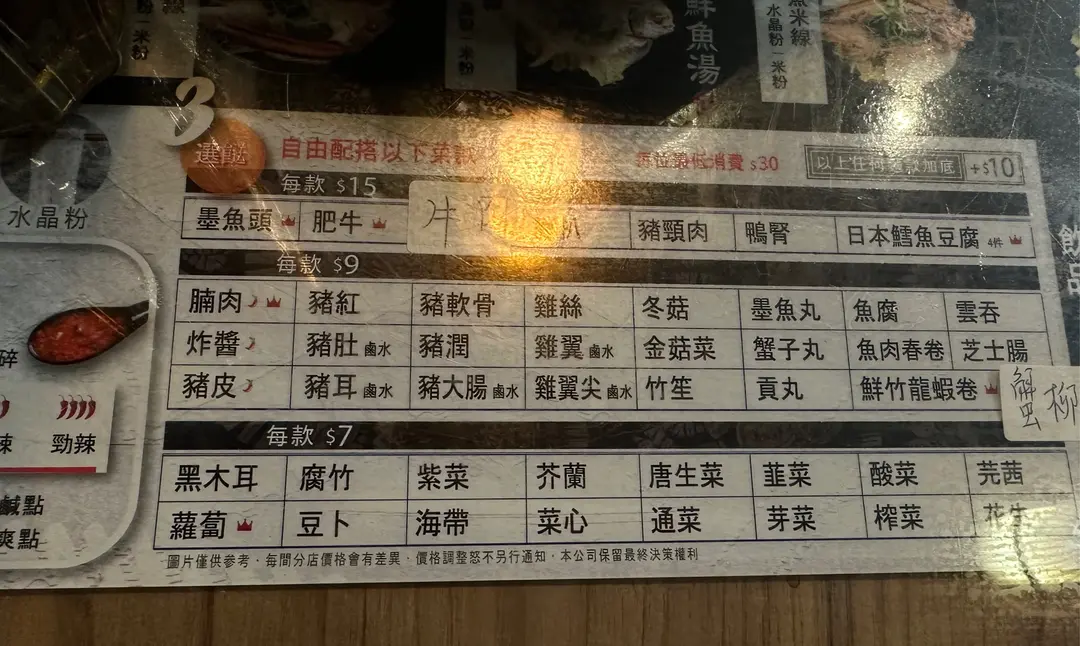 水晶粉一米粉
鮮魚湯
水晶粉一米粉
米線
3
選餸
自由配搭以下菜款
每位最低消費 $30
以上任何餸款加底 +$10
水晶粉
每款 $15
墨魚頭 肥牛 牛 扒 豬頸肉 鴨腎 日本鱈魚豆腐 4件
每款 $9
腩肉 豬紅 豬軟骨 雞絲 冬菇 墨魚丸 魚腐 雲吞
炸醬 豬肚 鹵水 豬潤 雞翼 鹵水 金菇菜 蟹子丸 魚肉春卷 芝士腸
豬皮 豬耳 鹵水 豬大腸 鹵水 雞翼尖 鹵水 竹笙 貢丸 鮮竹龍蝦卷 蟹柳
碎
辣 勁辣
每款 $7
黑木耳 腐竹 紫菜 芥蘭 唐生菜 韭菜 酸菜 芫茜
蘿蔔 豆卜 海帶 菜心 通菜 芽菜 榨菜 花生
鹹點
爽點
圖片僅供參考，每間分店價格會有差異，價格調整恕不另行通知，本公司保留最終決策權利
飲品